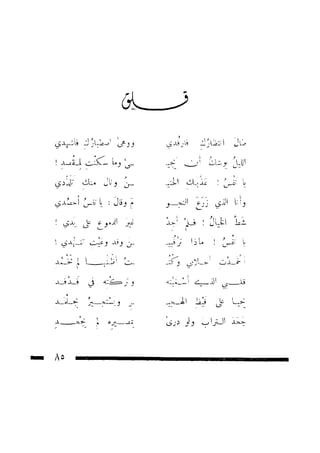 قلق
طال انتظارك فارقدي ووهى اصطبارك فاشهدي
الليل وشك أن يجيـ ـئ وما سكنت لمقصد !
يا نفس ! عذبك الحنيـ ـن ونال منك تلددي
وأنا الذي زرع النجـو م وقال : يا نفس أحصدي
شط الخيال ! فلم أجد غير الدموع على يدي !
يا نفس ! ماذا ترقبيـ ـن وقد وعيت تنهدي !
أخمدت أحلامي وكنـ ـت أظنها لم تخمد
قلبي الذي أشقيته وتركته في فدفد
يحيا على قيظ الهجيـ ـر ويستجير بجلمد
جحد التراب ولو درى بمصيره لم يجحد
٨٥